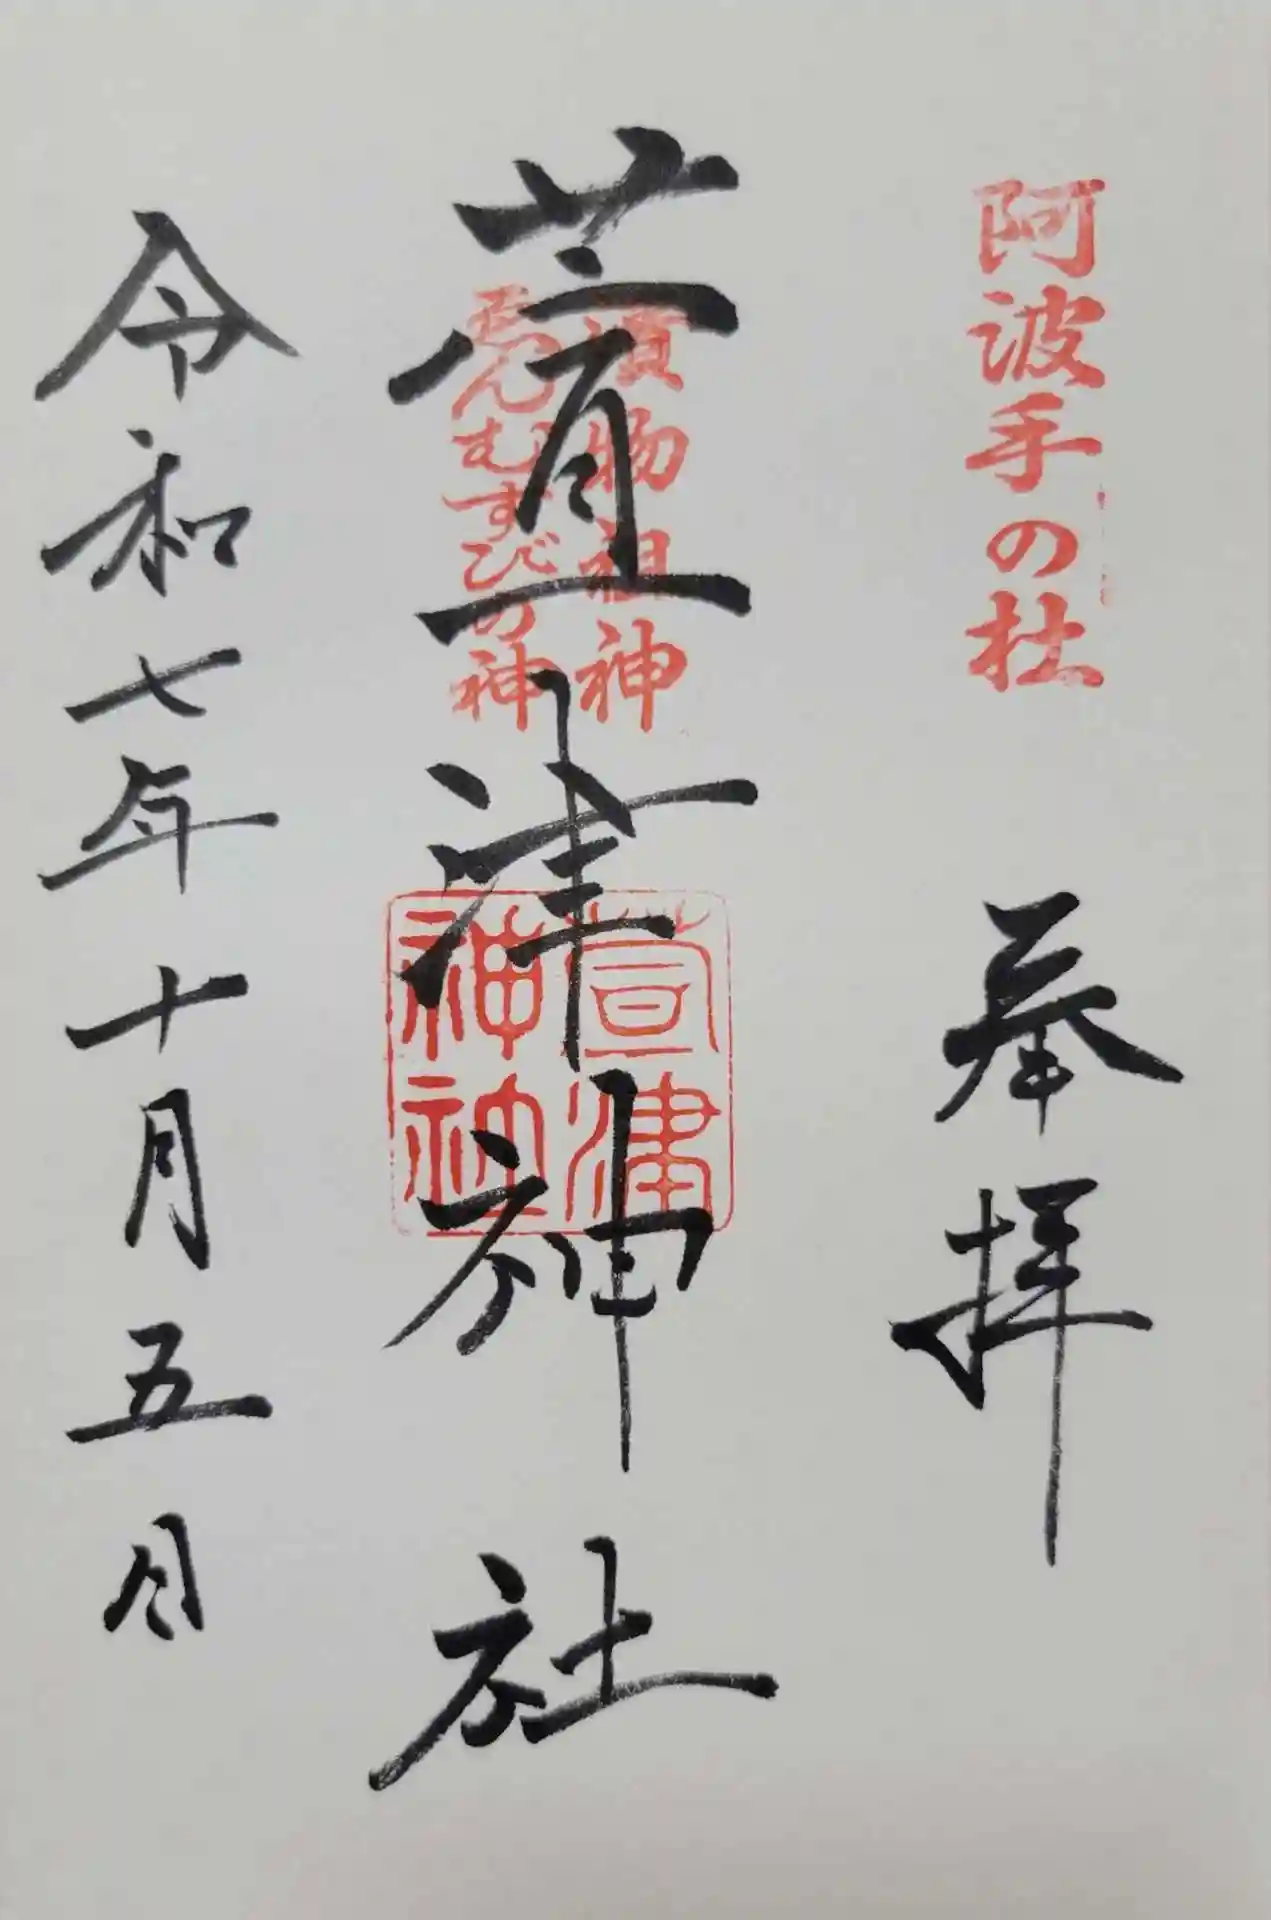 阿波手の杜
奉拝
漬物祖神
えんむすびの神
萱津神社
萱津
神社
令和七年十月五日